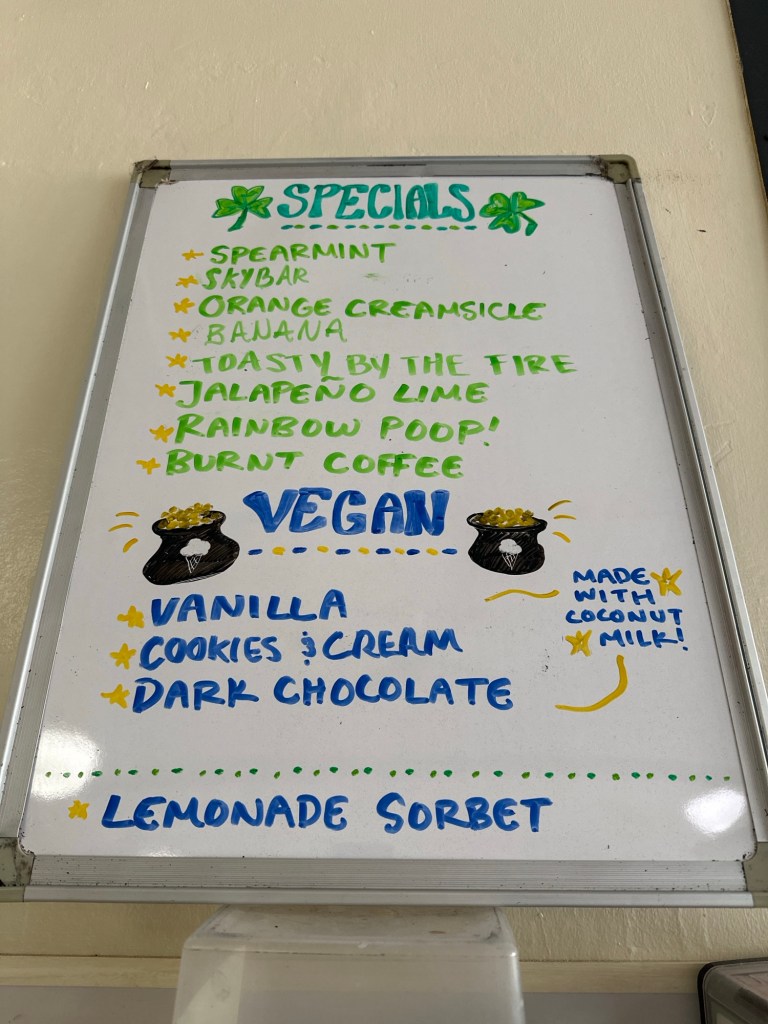 SPECIALS
SPEARMINT
SKYBAR
ORANGE CREAMSICLE
BANANA
TOASTY BY THE FIRE
JALAPEÑO LIME
RAINBOW POOP!
BURNT COFFEE
VEGAN
VANILLA
COOKIES & CREAM
DARK CHOCOLATE
MADE
WITH
COCONUT
MILK!
LEMONADE SORBET